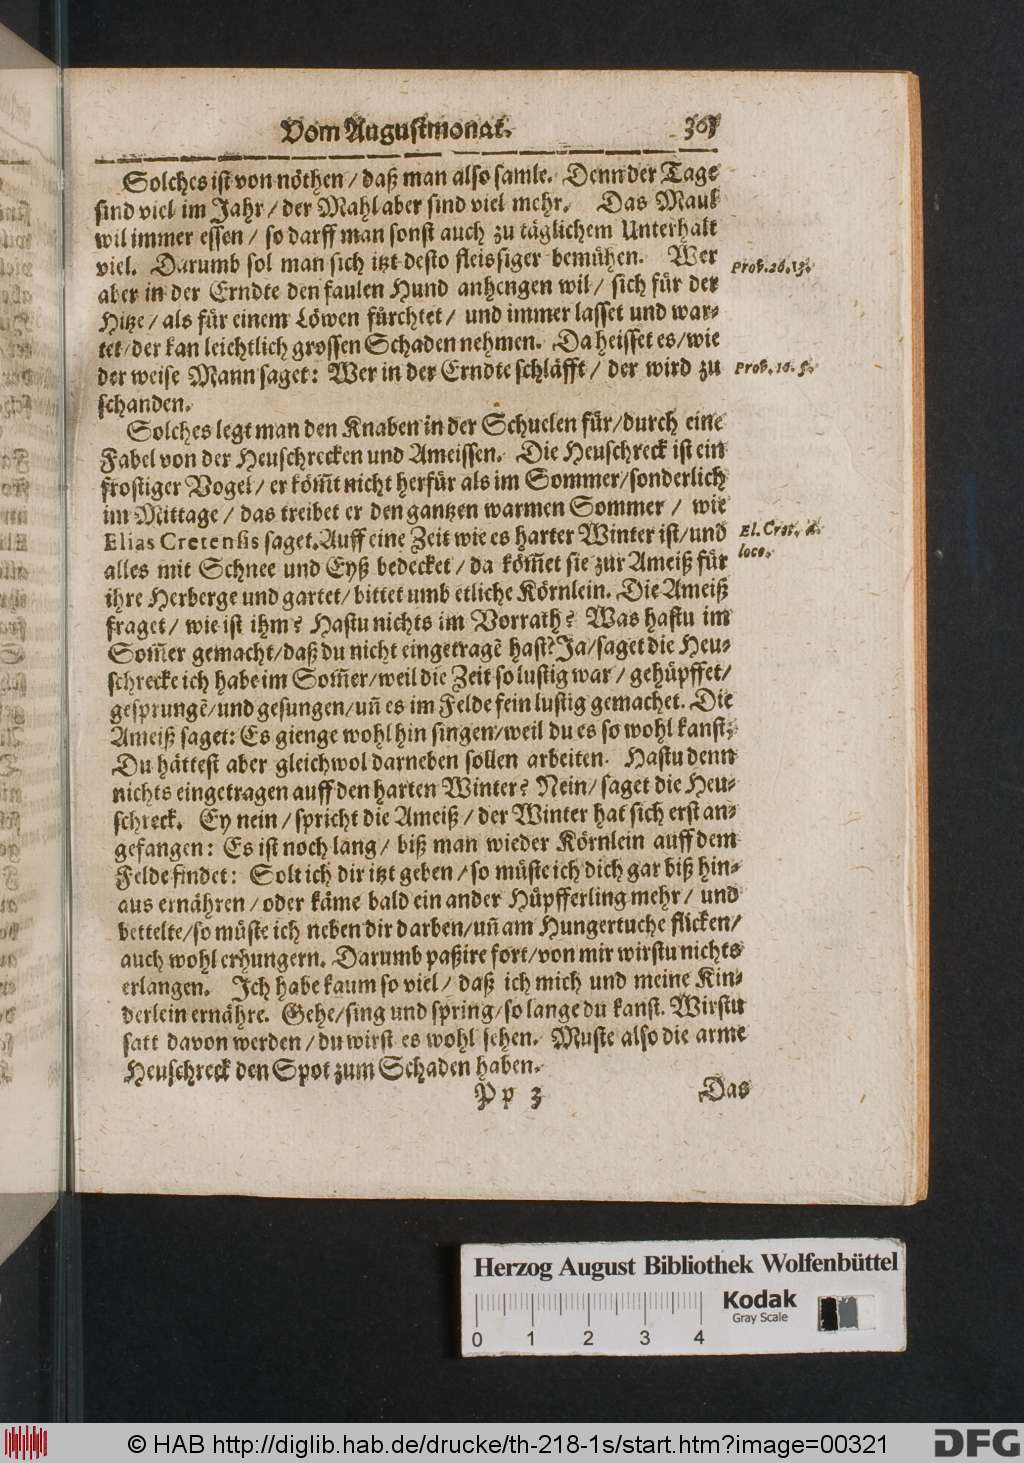 Vom Augustmonat. 303
Solches ist von nöthen / daß man also samle. Denn der Tage
sind viel im Jahr / der Mahl aber sind viel mehr. Das Maul
wil immer essen / so darff man sonst auch zu täglichem Unterhalt
viel. Darumb sol man sich itzt desto fleissiger bemühen. Wer
Prov. 26. 13.
aber in der Erndte den faulen Hund anhengen wil / sich für der
Hitze / als für einem Löwen fürchtet / und immer lasset und war-
tet / der kan leichtlich grossen Schaden nehmen. Da heisset es / wie
der weise Mann saget: Wer in der Erndte schläfft / der wird zu
Prov. 10. 5.
schanden.
Solches legt man den Knaben in der Schuelen für / durch eine
Fabel von der Heuschrecken und Ameissen. Die Heuschreck ist ein
frostiger Vogel / er köm̃t nicht herfür als im Sommer / sonderlich
im Mittage / das treibet er den gantzen warmen Sommer / wie
Elias Cretensis saget. Auff eine Zeit wie es harter Winter ist / und
El. Cret. d.
loco.
alles mit Schnee und Eyß bedecket / da köm̃et sie zur Ameiß für
ihre Herberge und gartet / bittet umb etliche Körnlein. Die Ameiß
fraget / wie ist ihm? Hastu nichts im Vorrath? Was hastu im
Som̃er gemacht / daß du nicht eingetragẽ hast? Ja / saget die Heu-
schrecke ich habe im Som̃er / weil die Zeit so lustig war / gehüpffet /
gesprungẽ / und gesungen / uñ es im Felde fein lustig gemachet. Die
Ameiß saget: Es gienge wohl hin singen / weil du es so wohl kanst;
Du hättest aber gleichwol darneben sollen arbeiten. Hastu denn
nichts eingetragen auff den harten Winter? Nein / saget die Heu-
schreck. Ey nein / spricht die Ameiß / der Winter hat sich erst an-
gefangen: Es ist noch lang / biß man wieder Körnlein auff dem
Felde findet: Solt ich dir itzt geben / so müste ich dich gar biß hin-
aus ernähren / oder käme bald ein ander Hüpfferling mehr / und
bettelte / so müste ich neben dir darben / uñ am Hungertuche flicken /
auch wohl erhungern. Darumb paßire fort / von mir wirstu nichts
erlangen. Ich habe kaum so viel / daß ich mich und meine Kin-
derlein ernähre. Gehe / sing und spring / so lange du kanst. Wirstu
satt davon werden / du wirst es wohl sehen. Muste also die arme
Heuschreck den Spot zum Schaden haben.
Pp 3 Das
Herzog August Bibliothek Wolfenbüttel
Kodak
Gray Scale
0 1 2 3 4
© HAB http://diglib.hab.de/drucke/th-218-1s/start.htm?image=00321
DFG